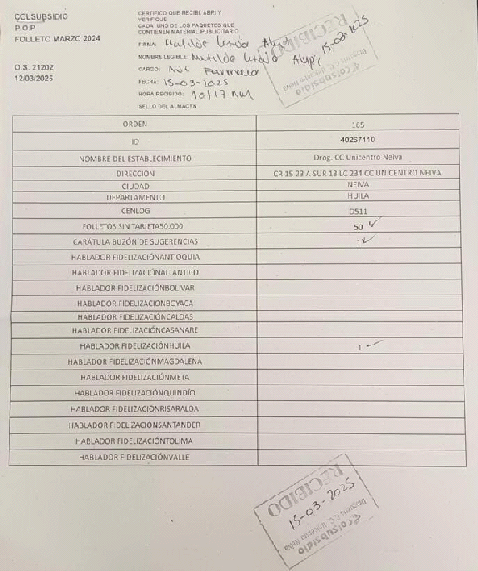 COLSUBSIDIO
P.O.P
FOLLETO MARZO 2024
O.S. 21202
12/03/2025
CERTIFICO QUE RECIBI, ABRI Y
VERIFIQUE
CADA UNO DE LOS PAQUETES QUE
CONTIENEN MATERIAL PUBLICITARIO
FIRMA:
NOMBRE LEGIBLE: Matilde
CARGO:
FECHA: 15-03-2025
HORA PROCESO: 10:17 AM
SELLO DEL ALMACEN
RECIBIDO
15-03-2025
Colsubsidio
ORDEN 165
ID 40257110
NOMBRE DEL ESTABLECIMIENTO Drog. CC Unicentro Neiva
DIRECCION
CIUDAD NEIVA
DEPARTAMENTO HUILA
CENLOG 0511
FOLLETOS 50
CARÁTULA BUZÓN DE SUGERENCIAS
HABLADOR FIDELIZACIÓNANTIOQUIA
HABLADOR FIDELIZACIÓNATLANTICO
HABLADOR FIDELIZACIÓNBOLIVAR
HABLADOR FIDELIZACIÓNBOYACA
HABLADOR FIDELIZACIÓNCALDAS
HABLADOR FIDELIZACIÓNCASANARE
HABLADOR FIDELIZACIÓNHUILA 1
HABLADOR FIDELIZACIÓNMAGDALENA
HABLADOR FIDELIZACIÓNMETA
HABLADOR FIDELIZACIÓNQUINDÍO
HABLADOR FIDELIZACIÓNRISARALDA
HABLADOR FIDELIZACIÓNSANTANDER
HABLADOR FIDELIZACIÓNTOLIMA
HABLADOR FIDELIZACIÓNVALLE
RECIBIDO
15-03-2025
Colsubsidio